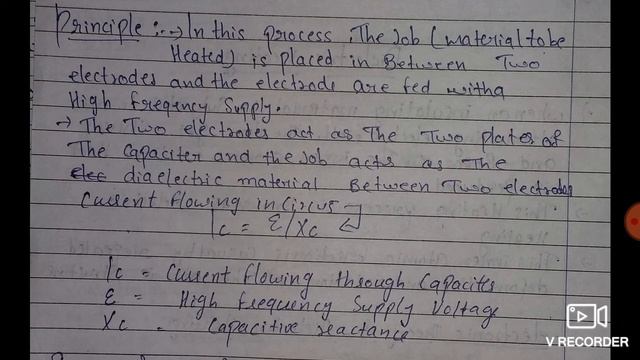 Principle :-> In this process, The Job (material to be
Heated) is placed in Between Two
electrodes and the electrode are fed with a
High Freqency Supply.
→ The Two electrodes act as The Two plates of
The Capaciter and the Job acts as The
diaelectric material Between Two electrodes
Current flowing in Circus
Ic = ε/Xc
Ic = Current flowing through Capacites
ε = High frequency Supply Voltage
Xc = Capacitive reactance
V RECORDER